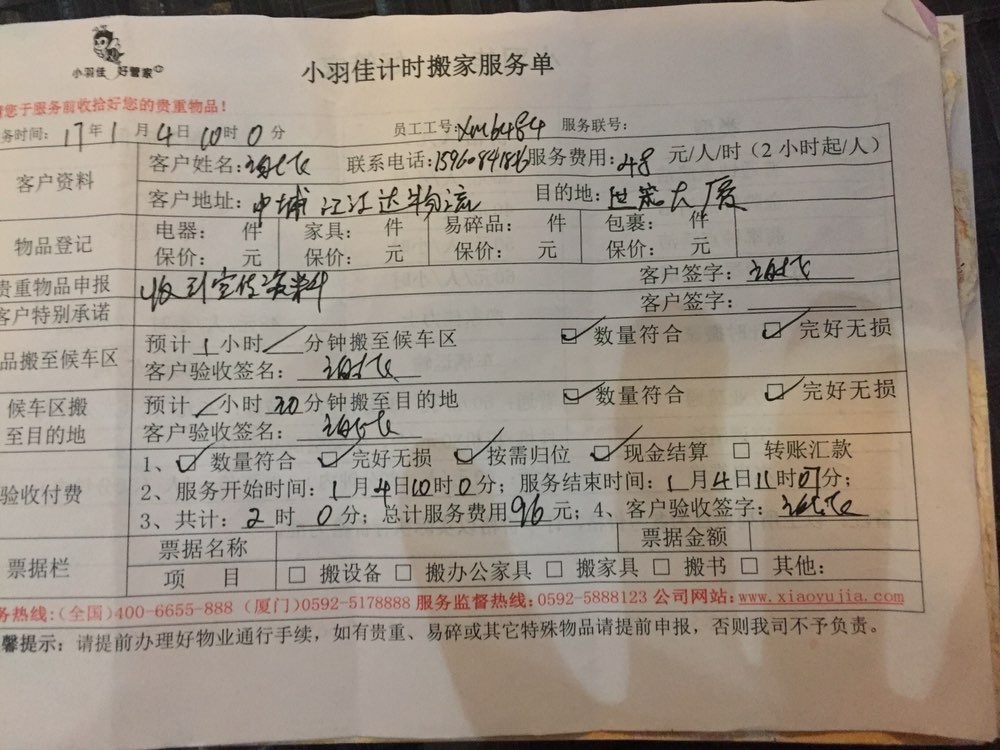 小羽佳 好管家
小羽佳计时搬家服务单
请您于服务前收拾好您的贵重物品!
务时间: 17年1月4日10时0分 员工工号:XM6484 服务联号:
客户资料
客户姓名: 联系电话:15960841816 服务费用:48 元/人/时(2小时起/人)
客户地址: 中埔 达物流 目的地: 大厦
物品登记
电器: 件 家具: 件 易碎品: 件 包裹: 件
保价: 元 保价: 元 保价: 元 保价: 元
贵重物品申报 收到宣传资料 客户签字:
客户特别承诺 客户签字:
品搬至候车区
预计1小时/分钟搬至候车区 ☑数量符合 ☑完好无损
客户验收签名:
候车区搬
至目的地
预计/小时20分钟搬至目的地 ☑数量符合 ☑完好无损
客户验收签名:
验收付费
1、☑数量符合 ☑完好无损 ☑按需归位 ☑现金结算 □转账汇款
2、服务开始时间:1月4日10时0分; 服务结束时间:1月4日11时0分;
3、共计:2时0分; 总计服务费用96元; 4、客户验收签字:
票据栏
票据名称 票据金额
项 目 □搬设备 □搬办公家具 □搬家具 □搬书 □其他:
务热线:(全国)400-6655-888 (厦门)0592-5178888 服务监督热线:0592-5888123 公司网站:www.xiaoyujia.com
馨提示: 请提前办理好物业通行手续,如有贵重、易碎或其它特殊物品请提前申报,否则我司不予负责。